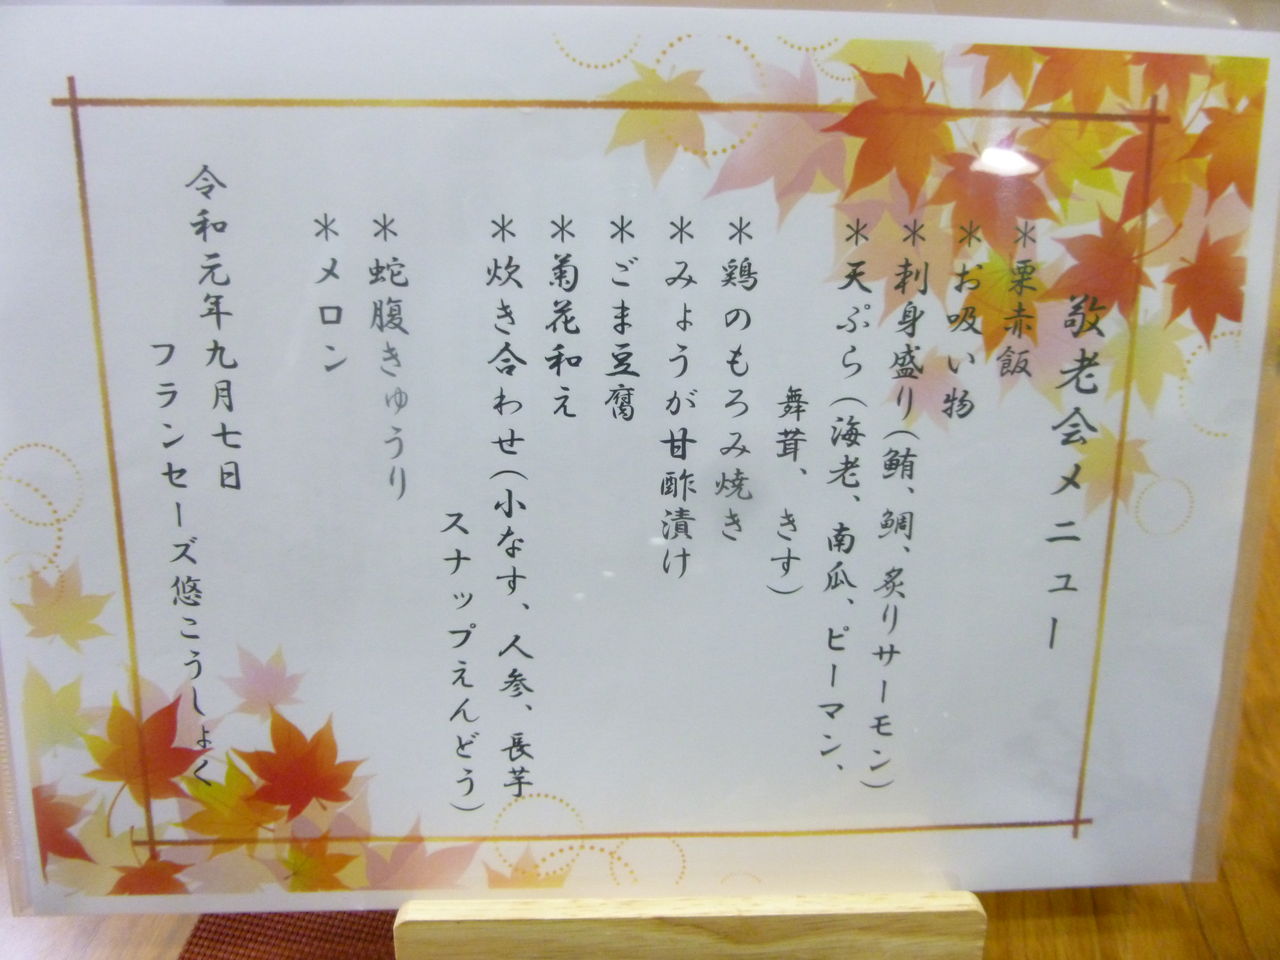 敬老会メニュー
＊栗赤飯
＊お吸い物
＊刺身盛り（鮪、鯛、炙りサーモン）
＊天ぷら（海老、南瓜、ピーマン、
舞茸、きす）
＊鶏のもろみ焼き
＊みょうが甘酢漬け
＊ごま豆腐
＊菊花和え
＊炊き合わせ（小なす、人参、長芋
スナップえんどう）
＊蛇腹きゅうり
＊メロン
令和元年九月七日
フランセーズ悠こうしょく